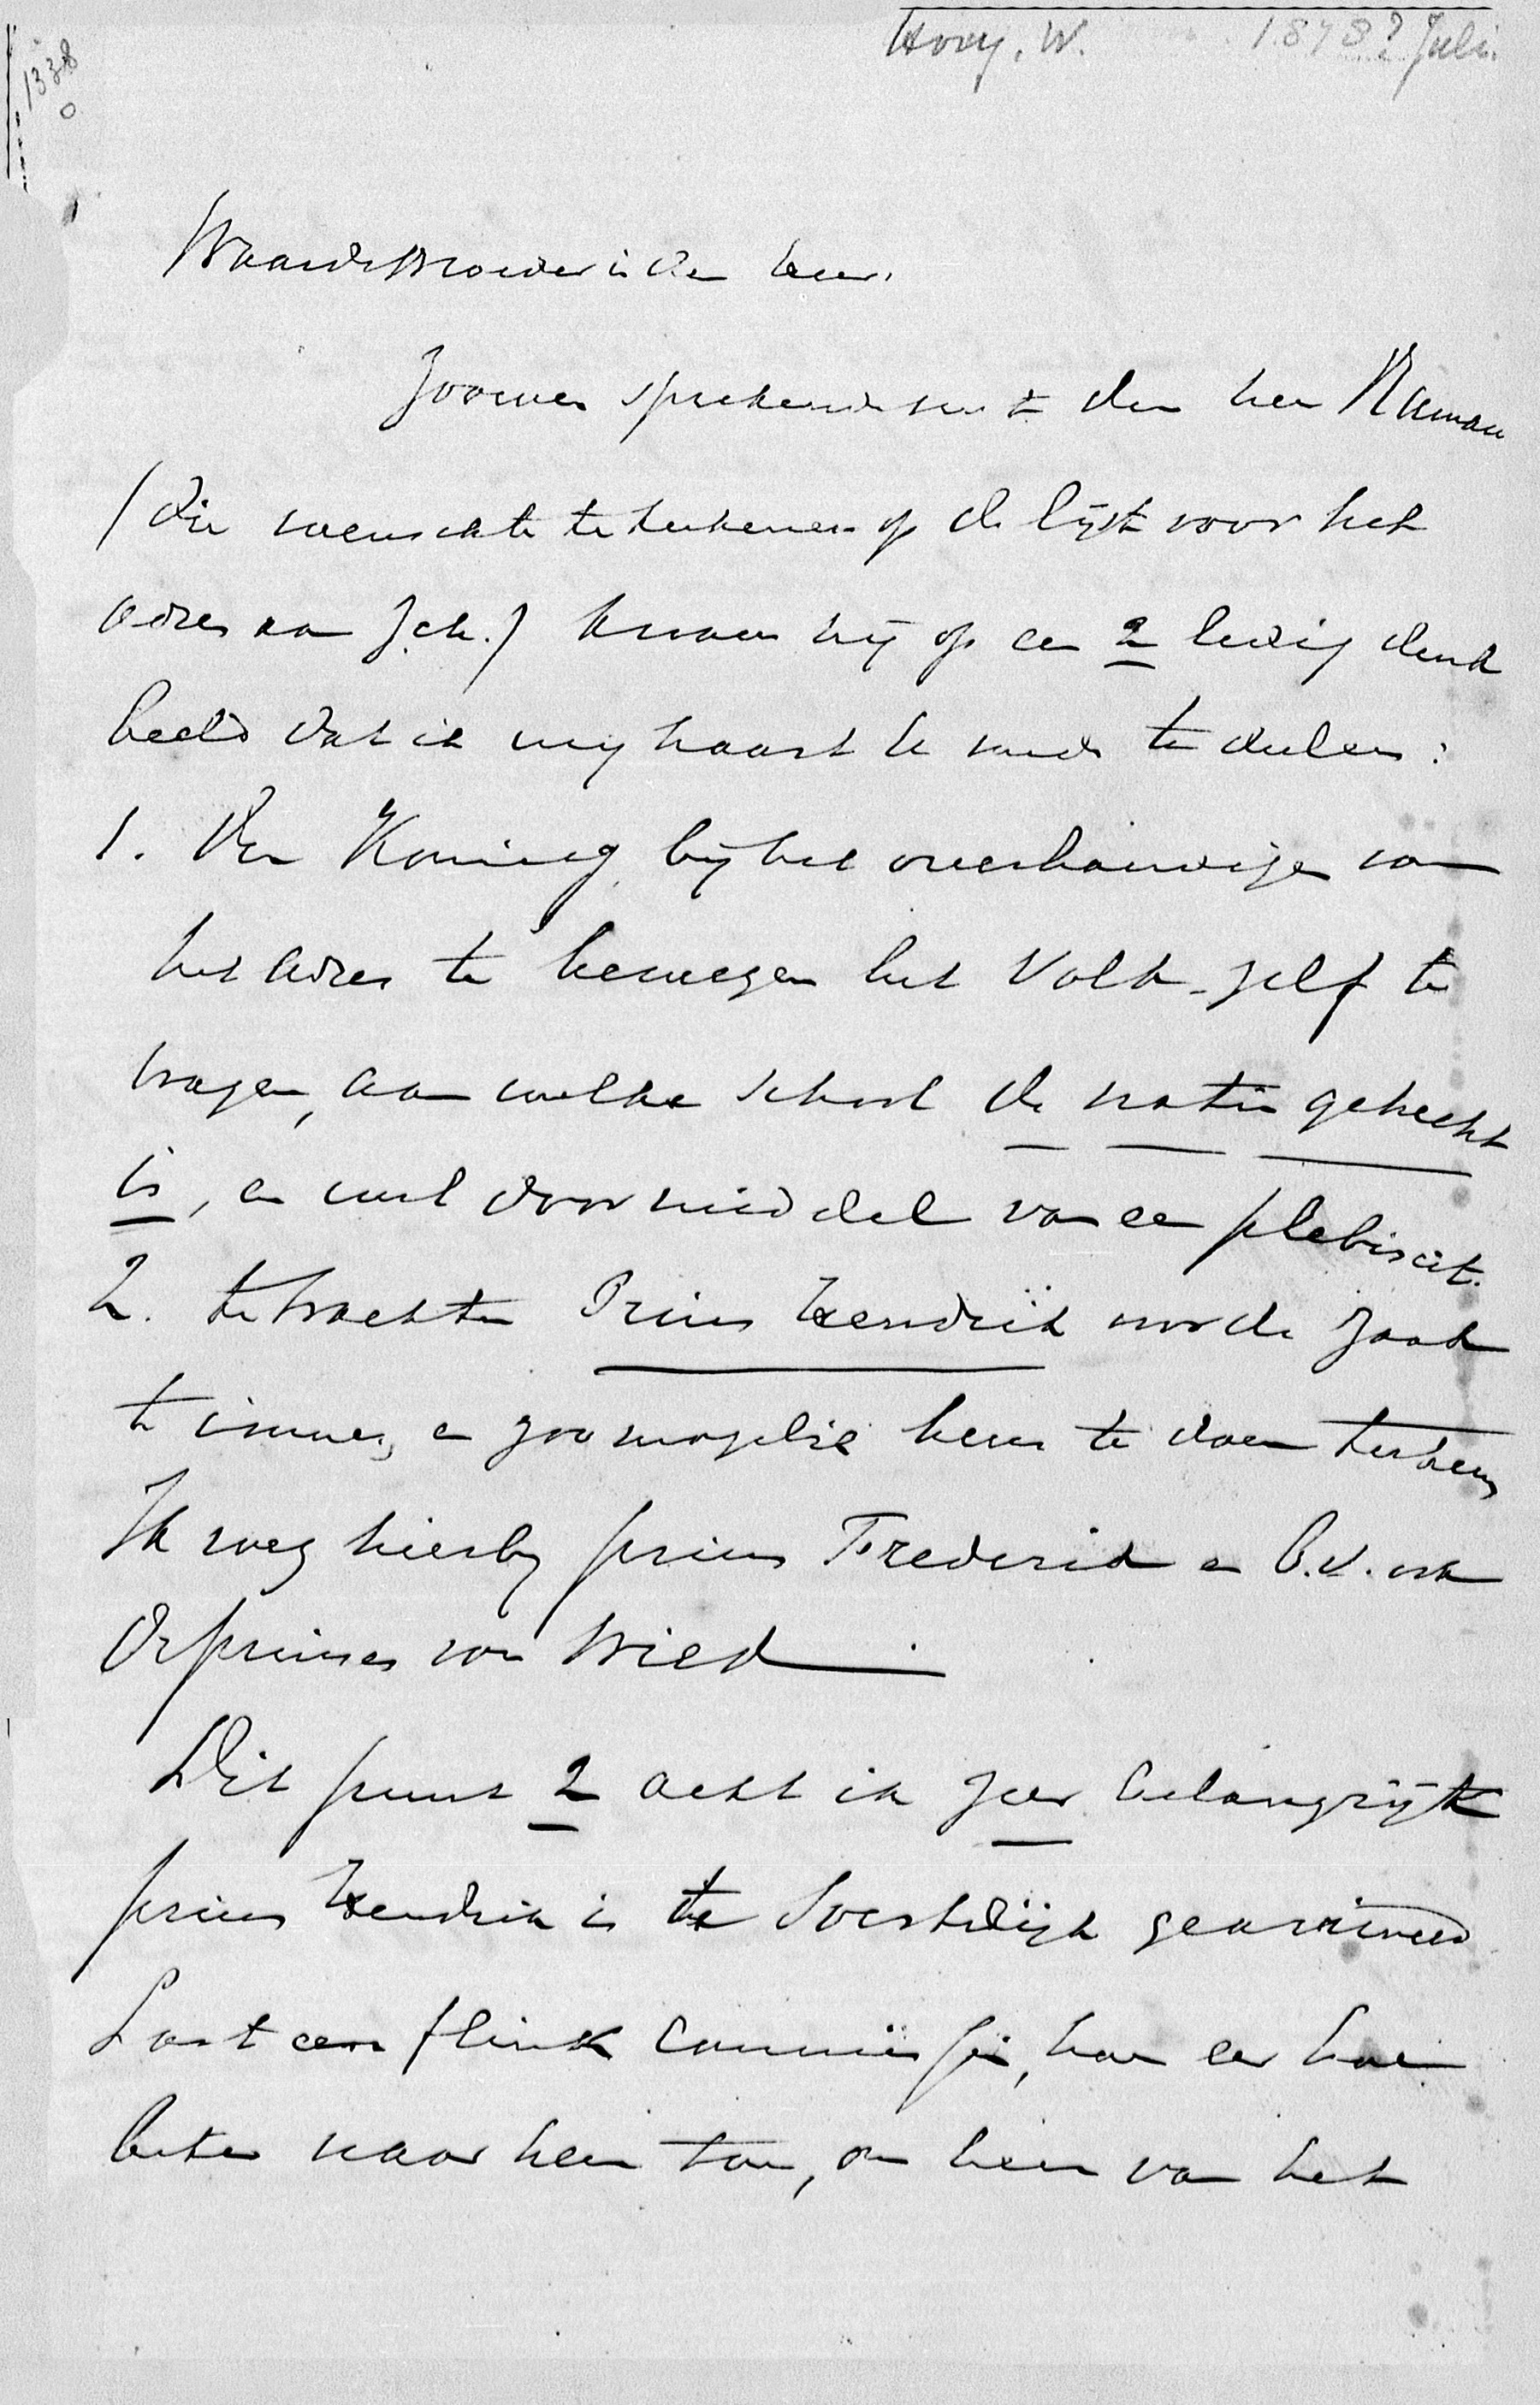 Hovy, W. 1878? Juli.
1338
0
Waarde Broeder in den Heer,
Zooeven sprekende met den heer
(die wenschte te teekenen op de lijst voor het
adres aan Z.M.) kwam hij op een 2 ledig denk
beeld dat ik mij haast U mede te deelen:
1. Den Koning bij het overhandigen van
het adres te bewegen het Volk zelf te
vragen, aan welke school de natie gehecht
is, en wel door middel van een plebisciet.
2. te trachten Prins Hendrik voor de zaak
te innen, en zoo mogelijk hem te doen teekenen
Ik voeg hierbij prins Frederik en b.v. ook
de prinses von Wied
Dit punt 2 acht ik zeer belangrijk
prins Hendrik is te Soestdijk gearriveerd
Laat een flink commissie, hoe eer hoe
beter naar hem toe, om hem van het